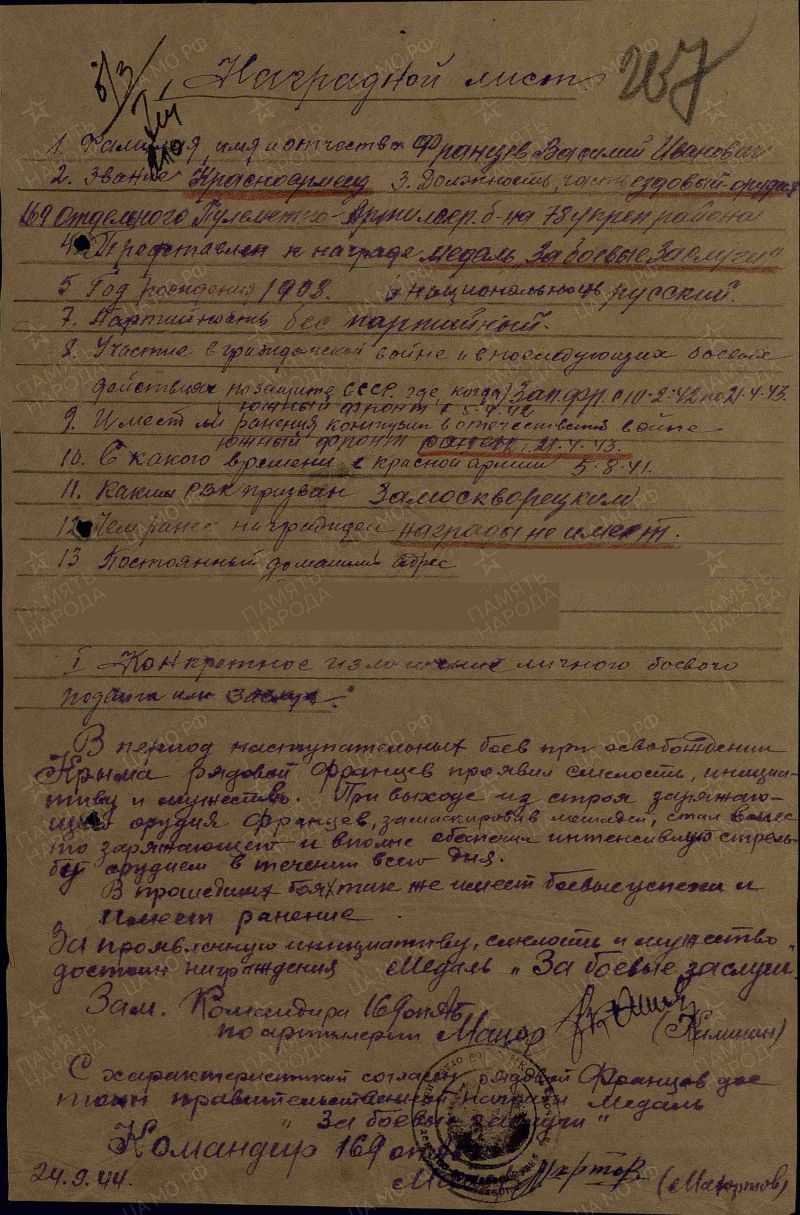 Наградной лист
267
1. Фамилия, имя и отчество Францев Василий Иванович
2. Звание Красноармеец 3. Должность, часть ездовый орудия
169 Отдельного Пульметно-Артиллер. б-на 78 укреп района
4. Представлен к награде медаль „За боевые заслуги"
5 Год рождения 1908. 6 национальность русский.
7. Партийность бес партийный.
8. Участие в гражданской войне и в последующих боевых
действиях по защите СССР где, когда) Зап. фр. с 10-2-42 по 21-4-43.
южный фронт
9. Имеет ли ранения контузии в отечественой войне
южный фронт ранен, 21-4-43.
10. С какого времени в красной армии 5-8-41.
11. Каким РВК призван Замоскворецким
12. Чем ранее награжден награды не имеет.
13 Постоянный домашний адрес
I Конкретное изложение личного боевого
подвига или заслуг.
В период наступательных боев при освобождении
Крыма рядовой Францев проявил смелость, инициа-
тиву и мужество. При выходе из строя заряжаю-
щего орудия Францев, замаскировав лошадей, стал вмес
то заряжающего и вполне обеспечил интенсивную стрель-
бу орудием в течении всего дня.
В прошедших боях так же имеет боевые успехи и
имеет ранение.
За проявленную инициативу, смелость и мужество
достоин награждения Медаль „За боевые заслуги"
Зам. Командира 169 опАБ
по артилерии Майор (Калинин)
С характеристикой согласен рядовой Францев дос
тоин правительственной награды Медаль
„За боевые заслуги"
Командир 169
24.9.44.